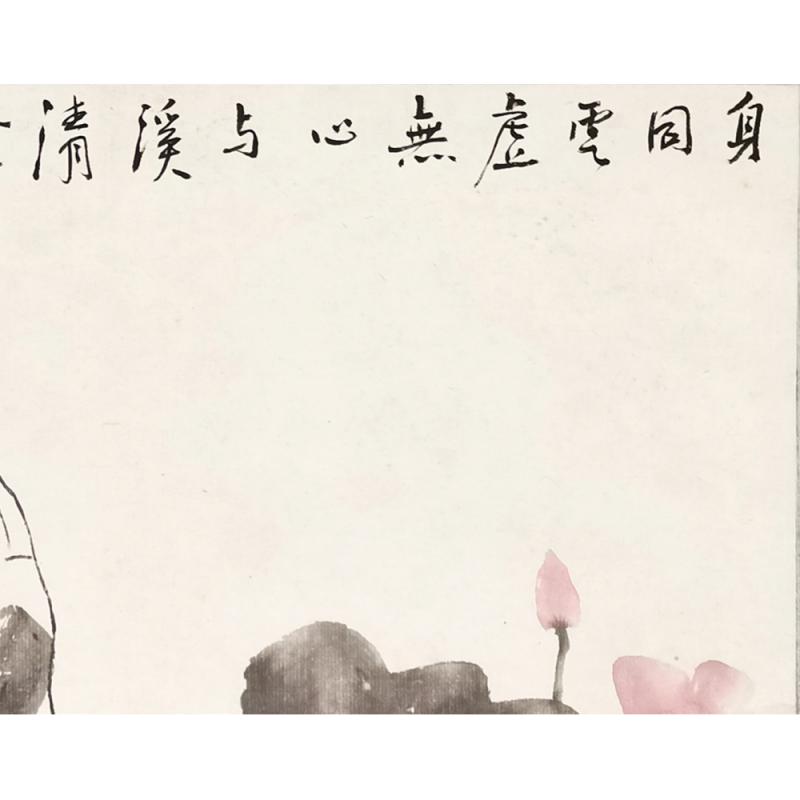 身同雲虛無心与溪清